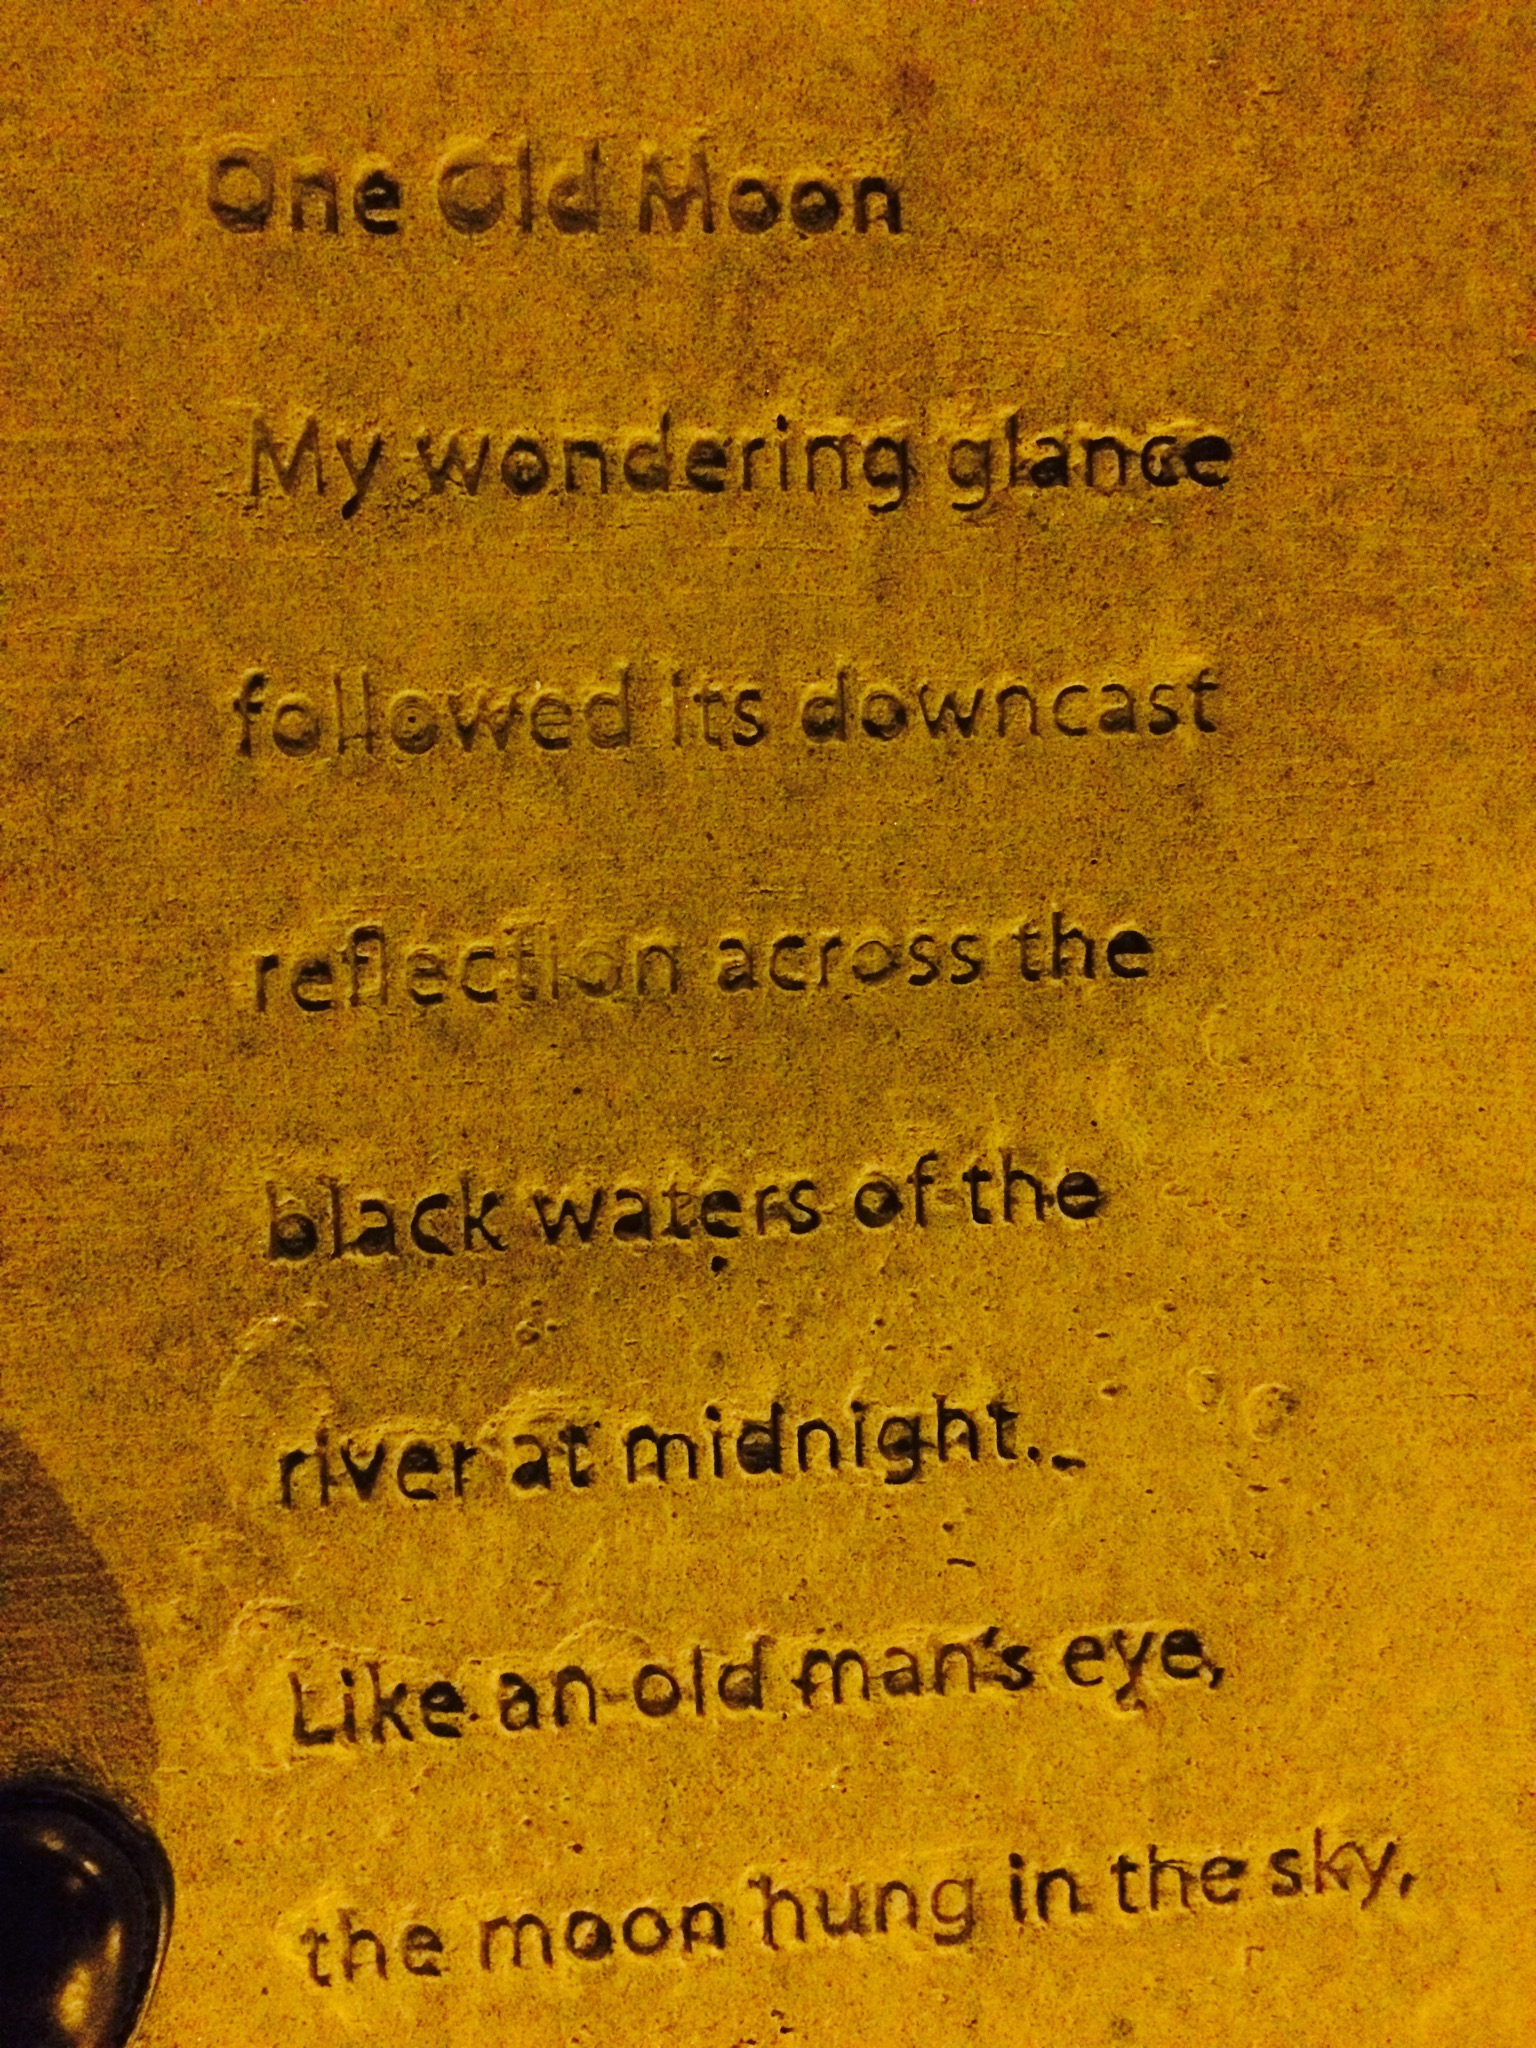 One Old Moon
My wondering glance
followed its downcast
reflection across the
black waters of the
river at midnight.
Like an old man's eye,
the moon hung in the sky,